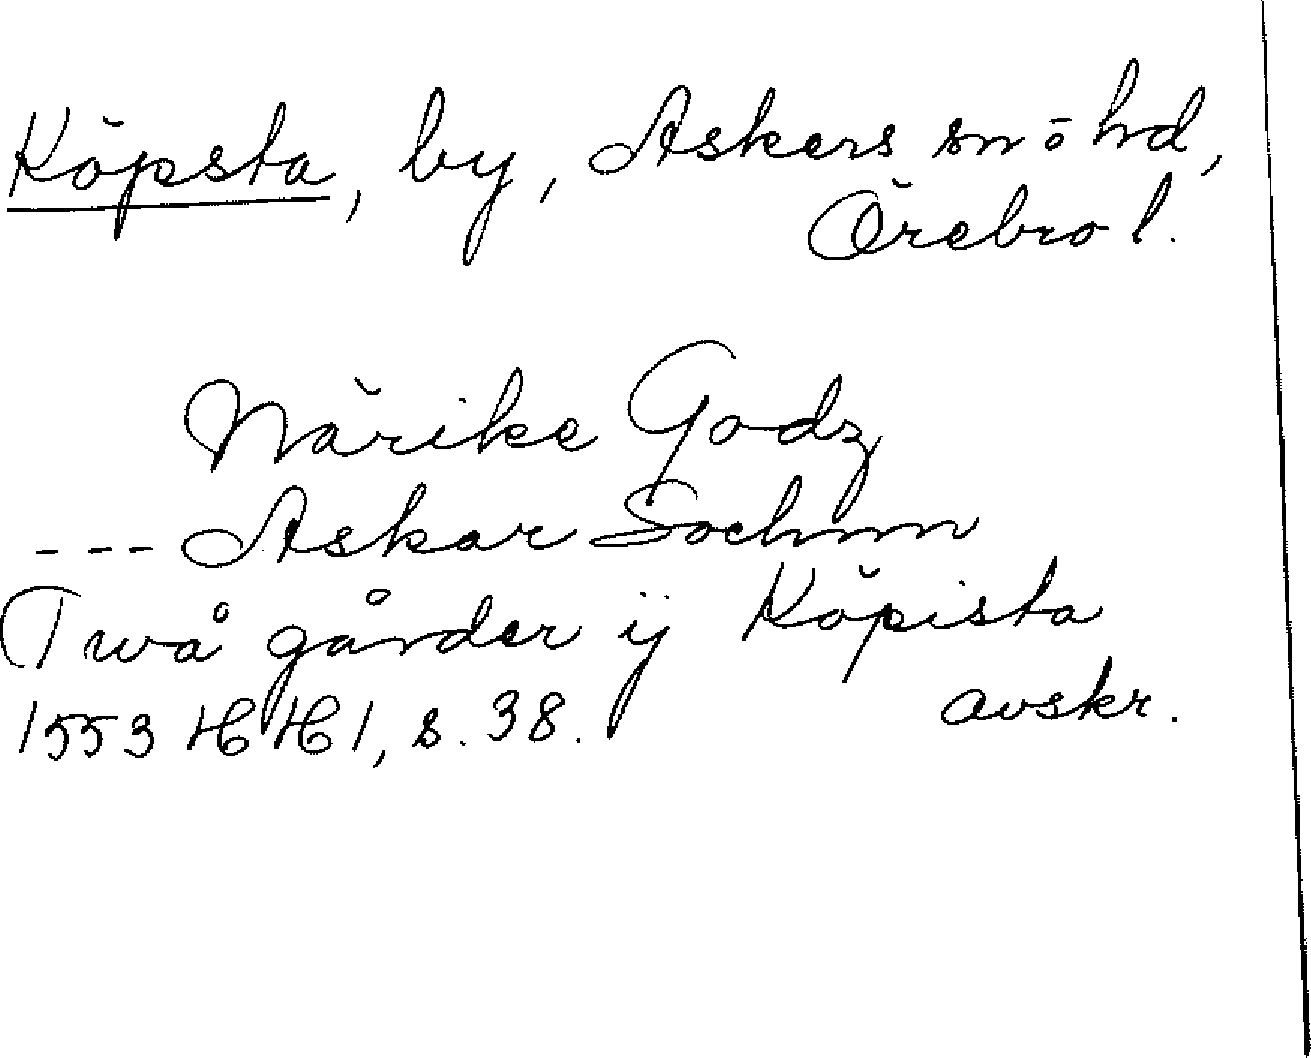 Köpsta, by, Askers sn ō hd,
Örebro l.
Närike Godz
--- Askar Sochnn
Twå gårder ij Köpista
1553 HH 1, s. 38. avskr.